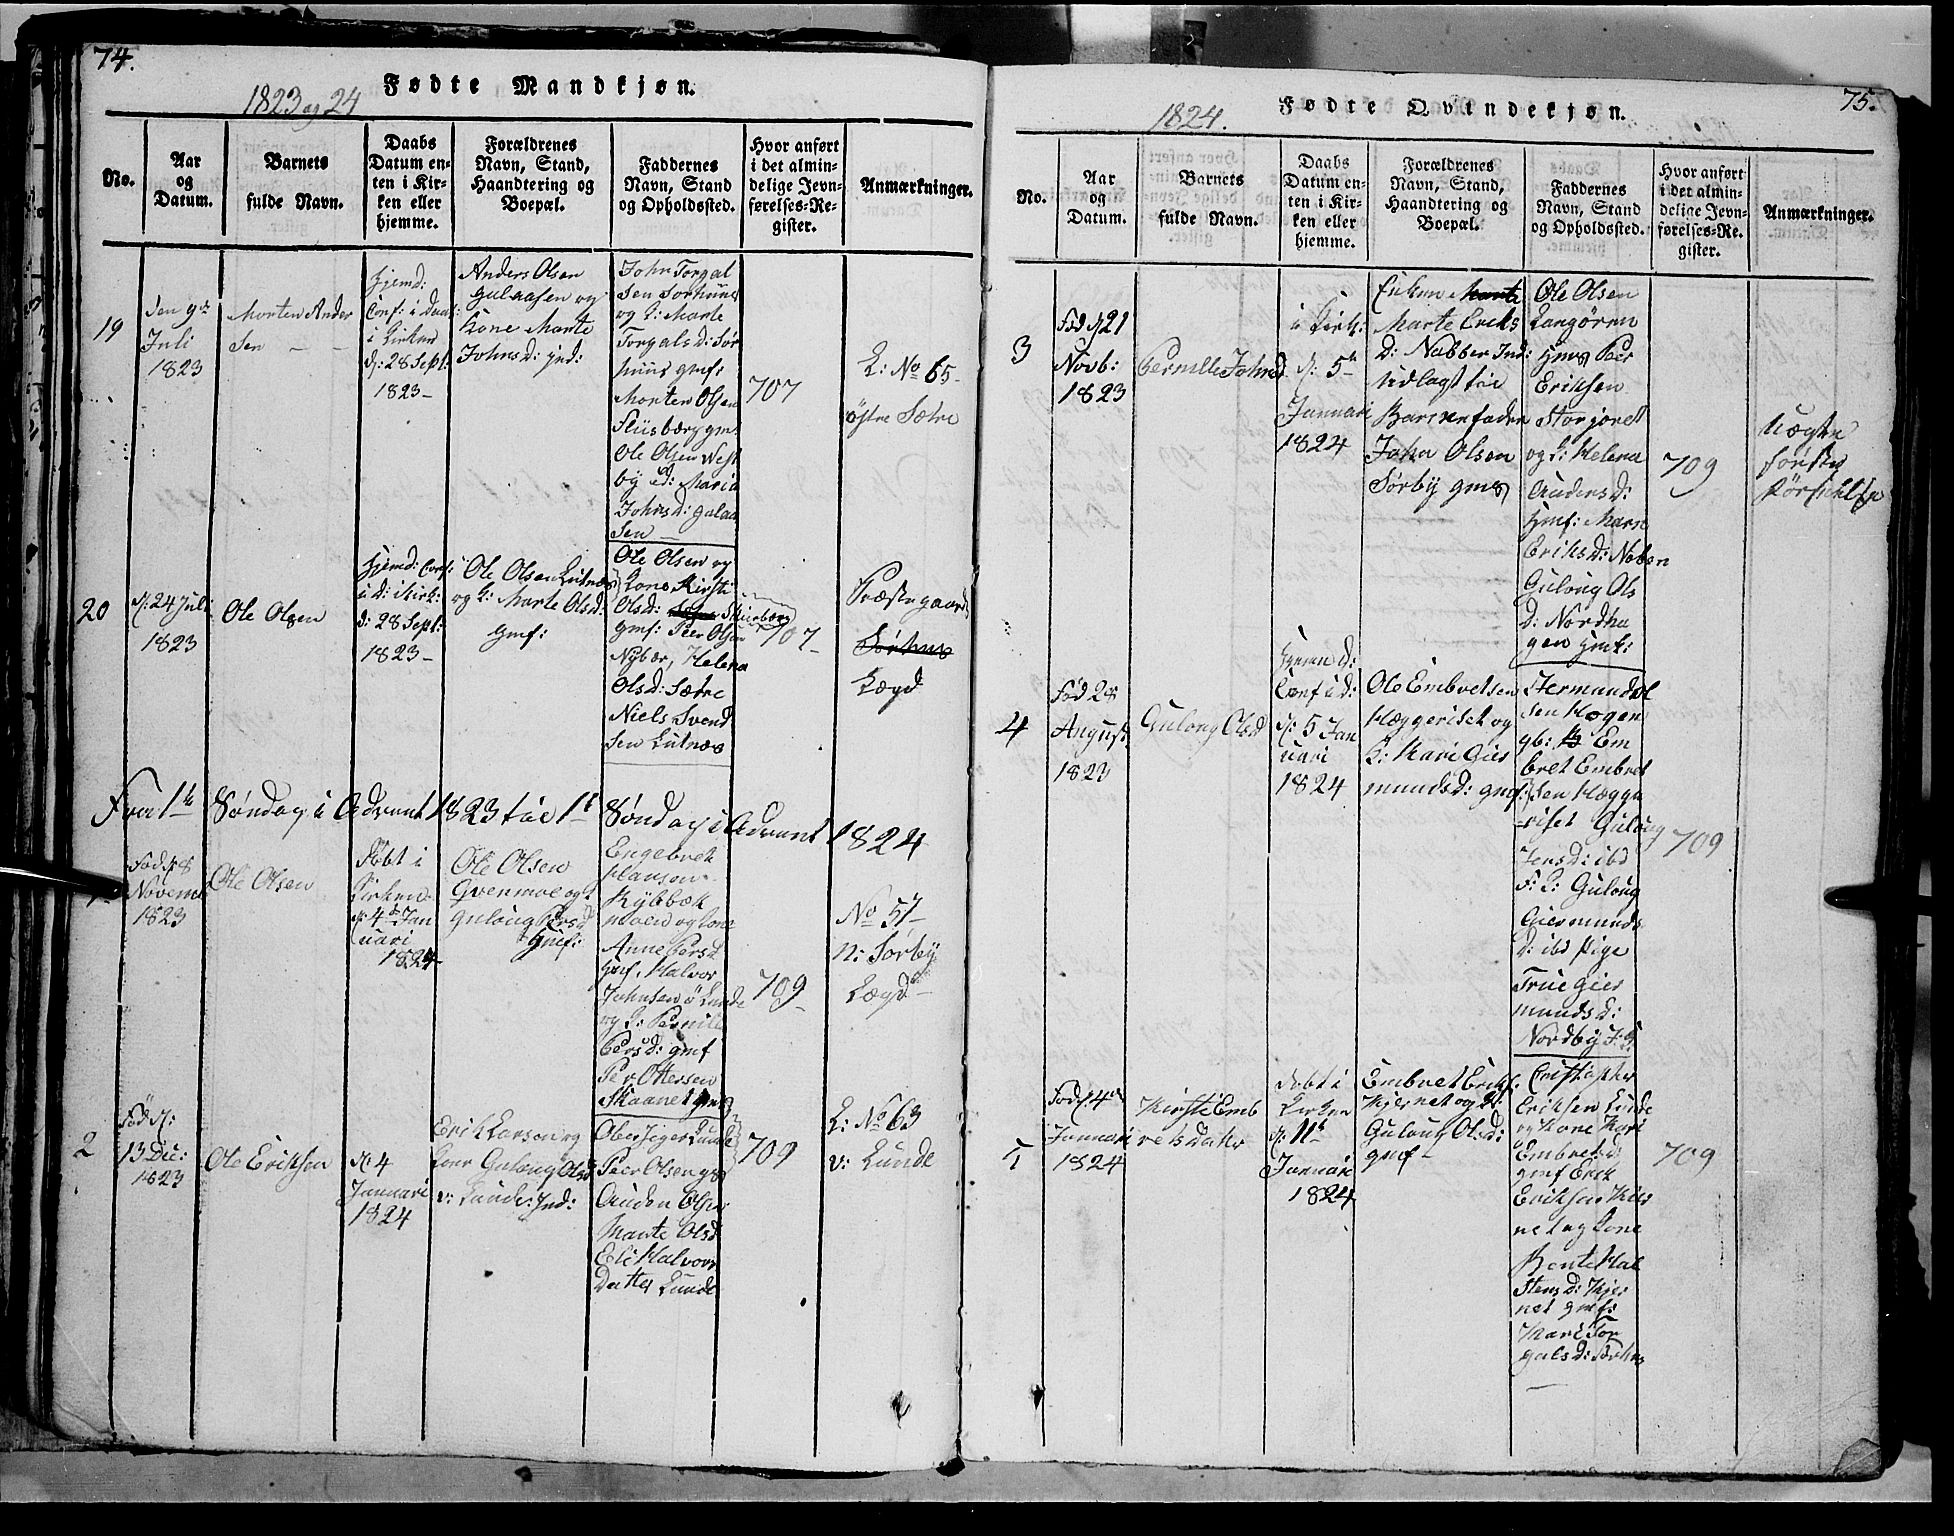 74.
1823 og 24
Fødte Mandkjøn.
No.
Aar
og
Datum.
Barnets
fulde Navn.
Daabs
Datum en-
ten i Kir-
ken eller
hjemme.
Forældrenes
Navn, Stand,
Haandtering og
Boepæl.
Faddernes
Navn, Stand
og Opholdssted.
Hvor anført
i det almin-
delige Jevn-
førelses-Re-
gister.
Anmærkninger.
19
den 9de
Juli
1823
Morten Ander
sen
Hjemd:
Conf: i Daab:
i Kirken
d: 28 Sept:
1823
Anders Olsen
Gulaasen og
Kone Marte
Johnsd: Ind:
John Torgal
sen Sorhuus
og K: Marte
Torgalsd: Sør
huus gmf:
Morten Olsen
gm:
Ole Olsen West
by
Maria
Johnsd: Gulaa
sen
707
L: No 65
Østre Sætre
20
d: 24 Juli
1823
Ole Olsen
Hjemd: Conf:
i d: i Kirk:
d: 28 Sept:
1823
Ole Olsen Lutnæs
og K: Marte Olsd:
Gmf:
Ole Olsen og
Kone Kirsti
Olsd:
gmf: Peer Olsen
Nybær, Helena
Olsd: Sætre
Niels Svend
sen Lutnæs
707
Præstegaard
Sørhus
Lægd
Fra 1te Søndag i Advent 1823 til 1te Søndag i Advent 1824
1
Fød d: 8
Novemb
1823
Ole Olsen
Døbt i
Kirken
d: 4de Jan
uari
1824
Ole Olsen
Gvenmoe og K
Gulaug Persd
Gmf:
Engebret
Hansen
moen og Kone
Anne Persd
Gmf, Halvor
Johnsen ø Lunde
og K: Pernille
Persd: gmf
Per Ottersen
Skaaret
709
No 57
N: Sørby
Lægd
2
Fød d:
13 Dec:
1823
Ole Eriksen
d: 4
Januari
1824
Erik Larsen og
Kone Gulaug Olsd
v: Lunde: Ind:
Ole Jeger Lunde
Peer Olsen
Auden Olsen
Marte Olsd
Eli Halvors
Datter Lunde
709
L: No 63
v: Lunde
75.
1824.
Fødte Qvindekjøn.
No.
Aar
og
Datum.
Barnets
fulde Navn.
Daabs
Datum en-
ten i Kir-
ken eller
hjemme.
Forældrenes
Navn, Stand,
Haandtering og
Boepæl.
Faddernes
Navn, Stand
og Opholdssted.
Hvor anført
i det almin-
delige Jevn-
førelses-Re-
gister.
Anmærkninger.
3
Fød d: 21
Novb:
1823
Pernille Johnsd
i Kirk:
d: 5te
Januari
1824
Enken Marte
Marte Eriks
d: Nabber Ind:
Udlagt til
Barnefader
John Olsen
Sørby gms
Ole Olsen
Langøren
gms Peer
Eriksen
Storjoret
og K: Helena
Andersd:
gmf: Maren
Eriksd: Naben
Gulaug Ols
d: Nordha
gen gmf:
709
Uægte
første
4
Fød 28
August
1823
Gulaug Olsd
Hjemd:
Conf i d:
d: 5 Jan
uari
1824
Ole Embretsen
Hæggeriset og
K: Kari Gier
mundsd: gmf:
Hermundol
sen Hagen
gb: Em
bret Embret
sen Hægge
riset Gulaug
Jensd: ibd
Gulaug
Giermunds
d: ibd Pige
True Gier
mundsd:
Nordby
709
5
Fød d: 4de
Januari
1824
Kirsti Emb
rets dater
Døbt i
Kirken
d: 11te
Januari
1824
Embret Eriks:
Kjernet og K:
Gulaug Olsd:
gmf
Cristopher
Eriksen Lunde
og Kone Kari
Embretsd:
gmf Erik
Eriksen Kier
net og Kone
Bente Hal
stensd: Kjer
net gmf:
Mari Tor
galsd: Sørhus
709